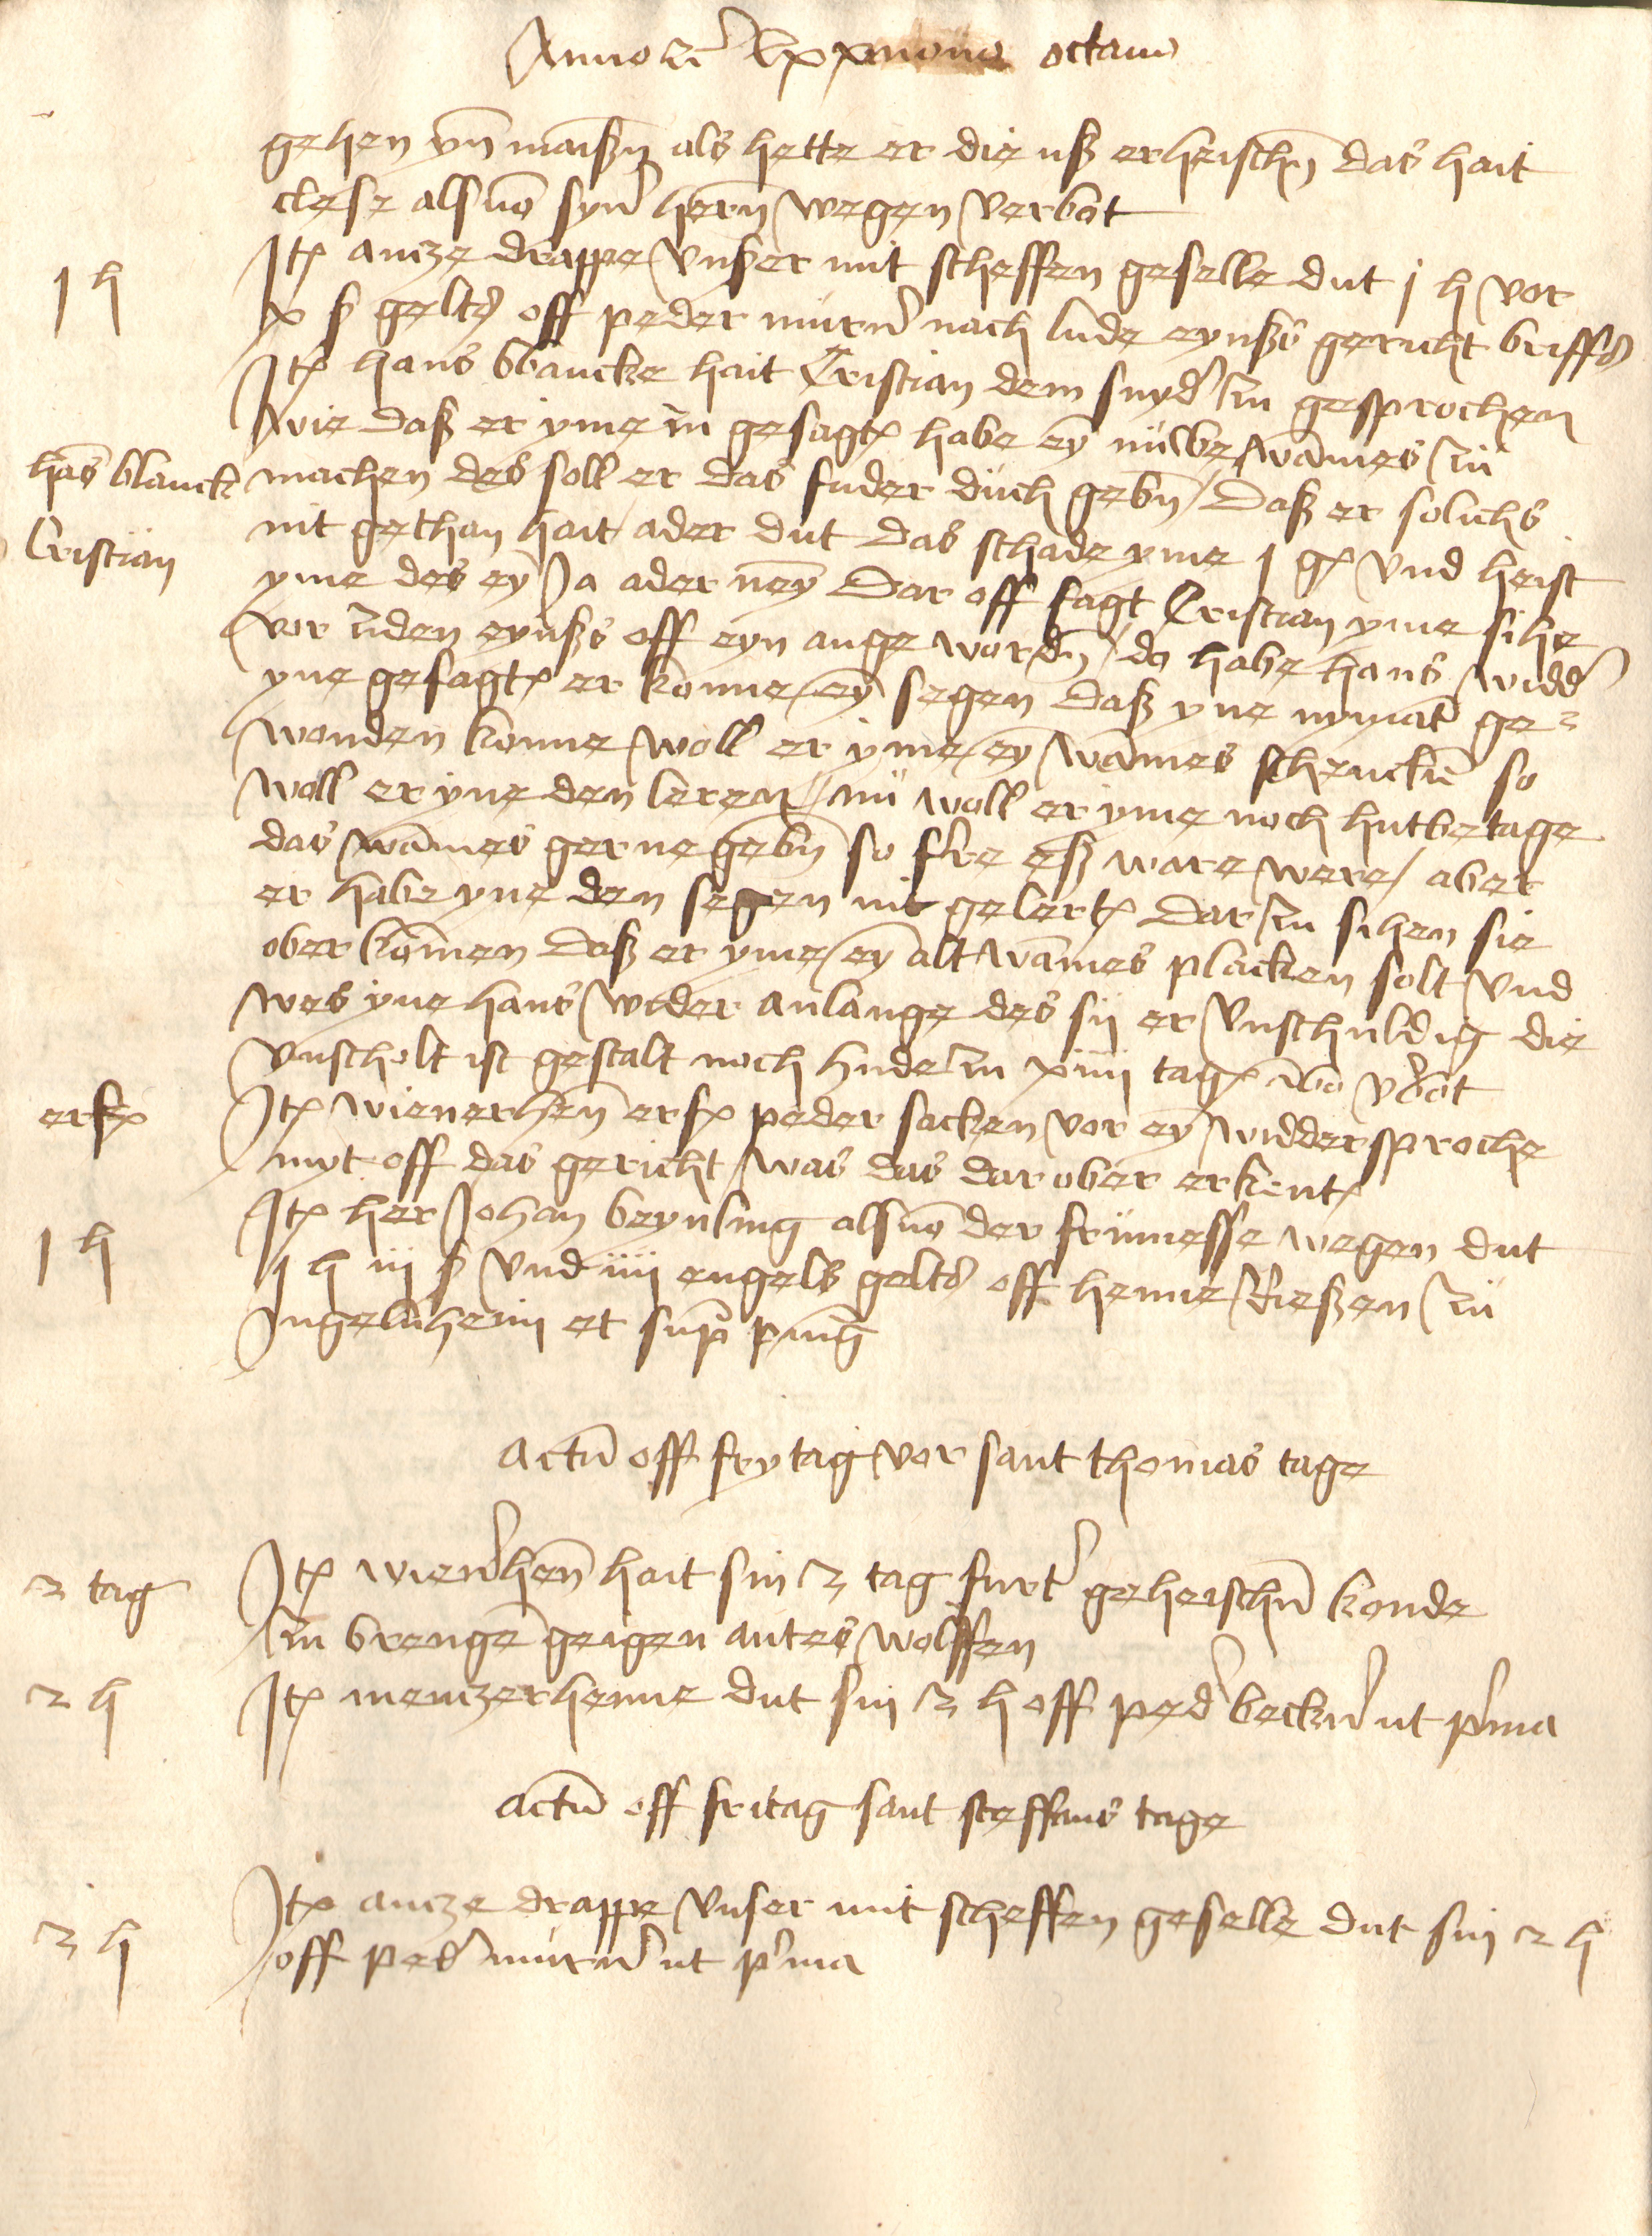 Anno etc lxx octavo
gehen yn maißn als hette er die uß erheischn das hait
clese als von syner hern wegen verbot
1 h Itē antze drappe unßer mit scheffen geselle dut j h vor
x ß gelts off peder murer nach lude eynßs gericht briffs
Itē hans blancke hait Cristian dem snyder zu gesprochen
wie daß er yme zu gesagt habe ey nuwe wames zu
hans blanck machen des soll er das fuder duch gebn / Daß er solichs
Cristian nit gethan hait ader dut das schade yme j gl und heist
yme des ey Ja ader ney Dar off sagt Cristian yme sihe
vor ziden eynßs off eyn auge wordn / da habe hans widder
yne gesagt er konne ey segen daß yne nymant ge-
wonden konne woll er yme ey wames schencke so
woll er yne den leren / nu woll er yme noch hutbetage
das wames gerne gebn so fere eß ware were / aber
er habe yne den segen nit gelert Dar zu sihen sie
ober komen daß er yme ey alt wames placken solt und
wes yne hans wider anlange des sij er unschuldig die
unscholt ist gestalt noch hude zu xiiij tag ubi verbot
erf Itē wienerhen erf peder sacken vor ey widdersproche
myt off das gericht was das dar ober erkent
1 h Itē her Johan beynling als von der frümesse wegen dut
j h iij ß und iiij engels gelts off henne Rießen zu
Ingelnheim et supra pnia
Actum off frytag vor sant thomas tage
2 tag Itē wienerhen hait sin 2 tag furter geheischn konde
zu brenge geigen antes wolffen
2 h Itē mentzerhenne dut sin 2 h off peder becker ut prima
Actum off fritag sant steffans tage
2 h Itē antze drappe unser mit scheffen geselle dut sin 2 h
off peder murer ut prima